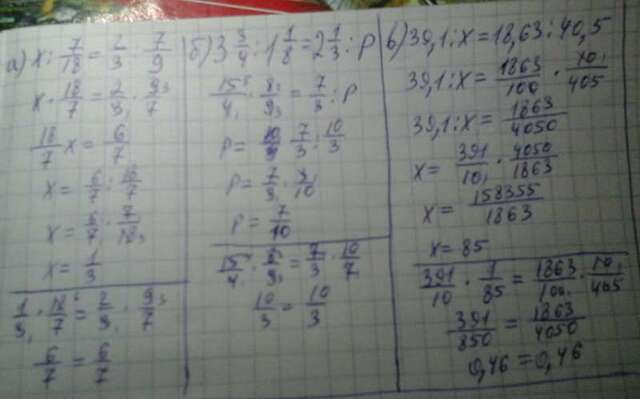 а) x : 7/18 = 2/3 : 7/9
x · 18/7 = 2/3 · 9/7
18/7 x = 6/7
x = 6/7 : 18/7
x = 6/7 · 7/18
x = 1/3
1/3 · 18/7 = 2/3 · 9/7
6/7 = 6/7
б) 3 3/4 : 1 1/8 = 2 1/3 : p
15/4 · 8/9 = 7/3 : p
p = 7/3 : 10/3
p = 7/3 · 3/10
p = 7/10
15/4 · 8/9 = 7/3 · 10/7
10/3 = 10/3
в) 39,1 : x = 18,63 : 40,5
39,1 : x = 1863/100 · 10/405
39,1 : x = 1863/4050
x = 391/10 · 4050/1863
x = 158355/1863
x = 85
391/10 · 1/85 = 1863/100 · 10/405
391/850 = 1863/4050
0,46 = 0,46